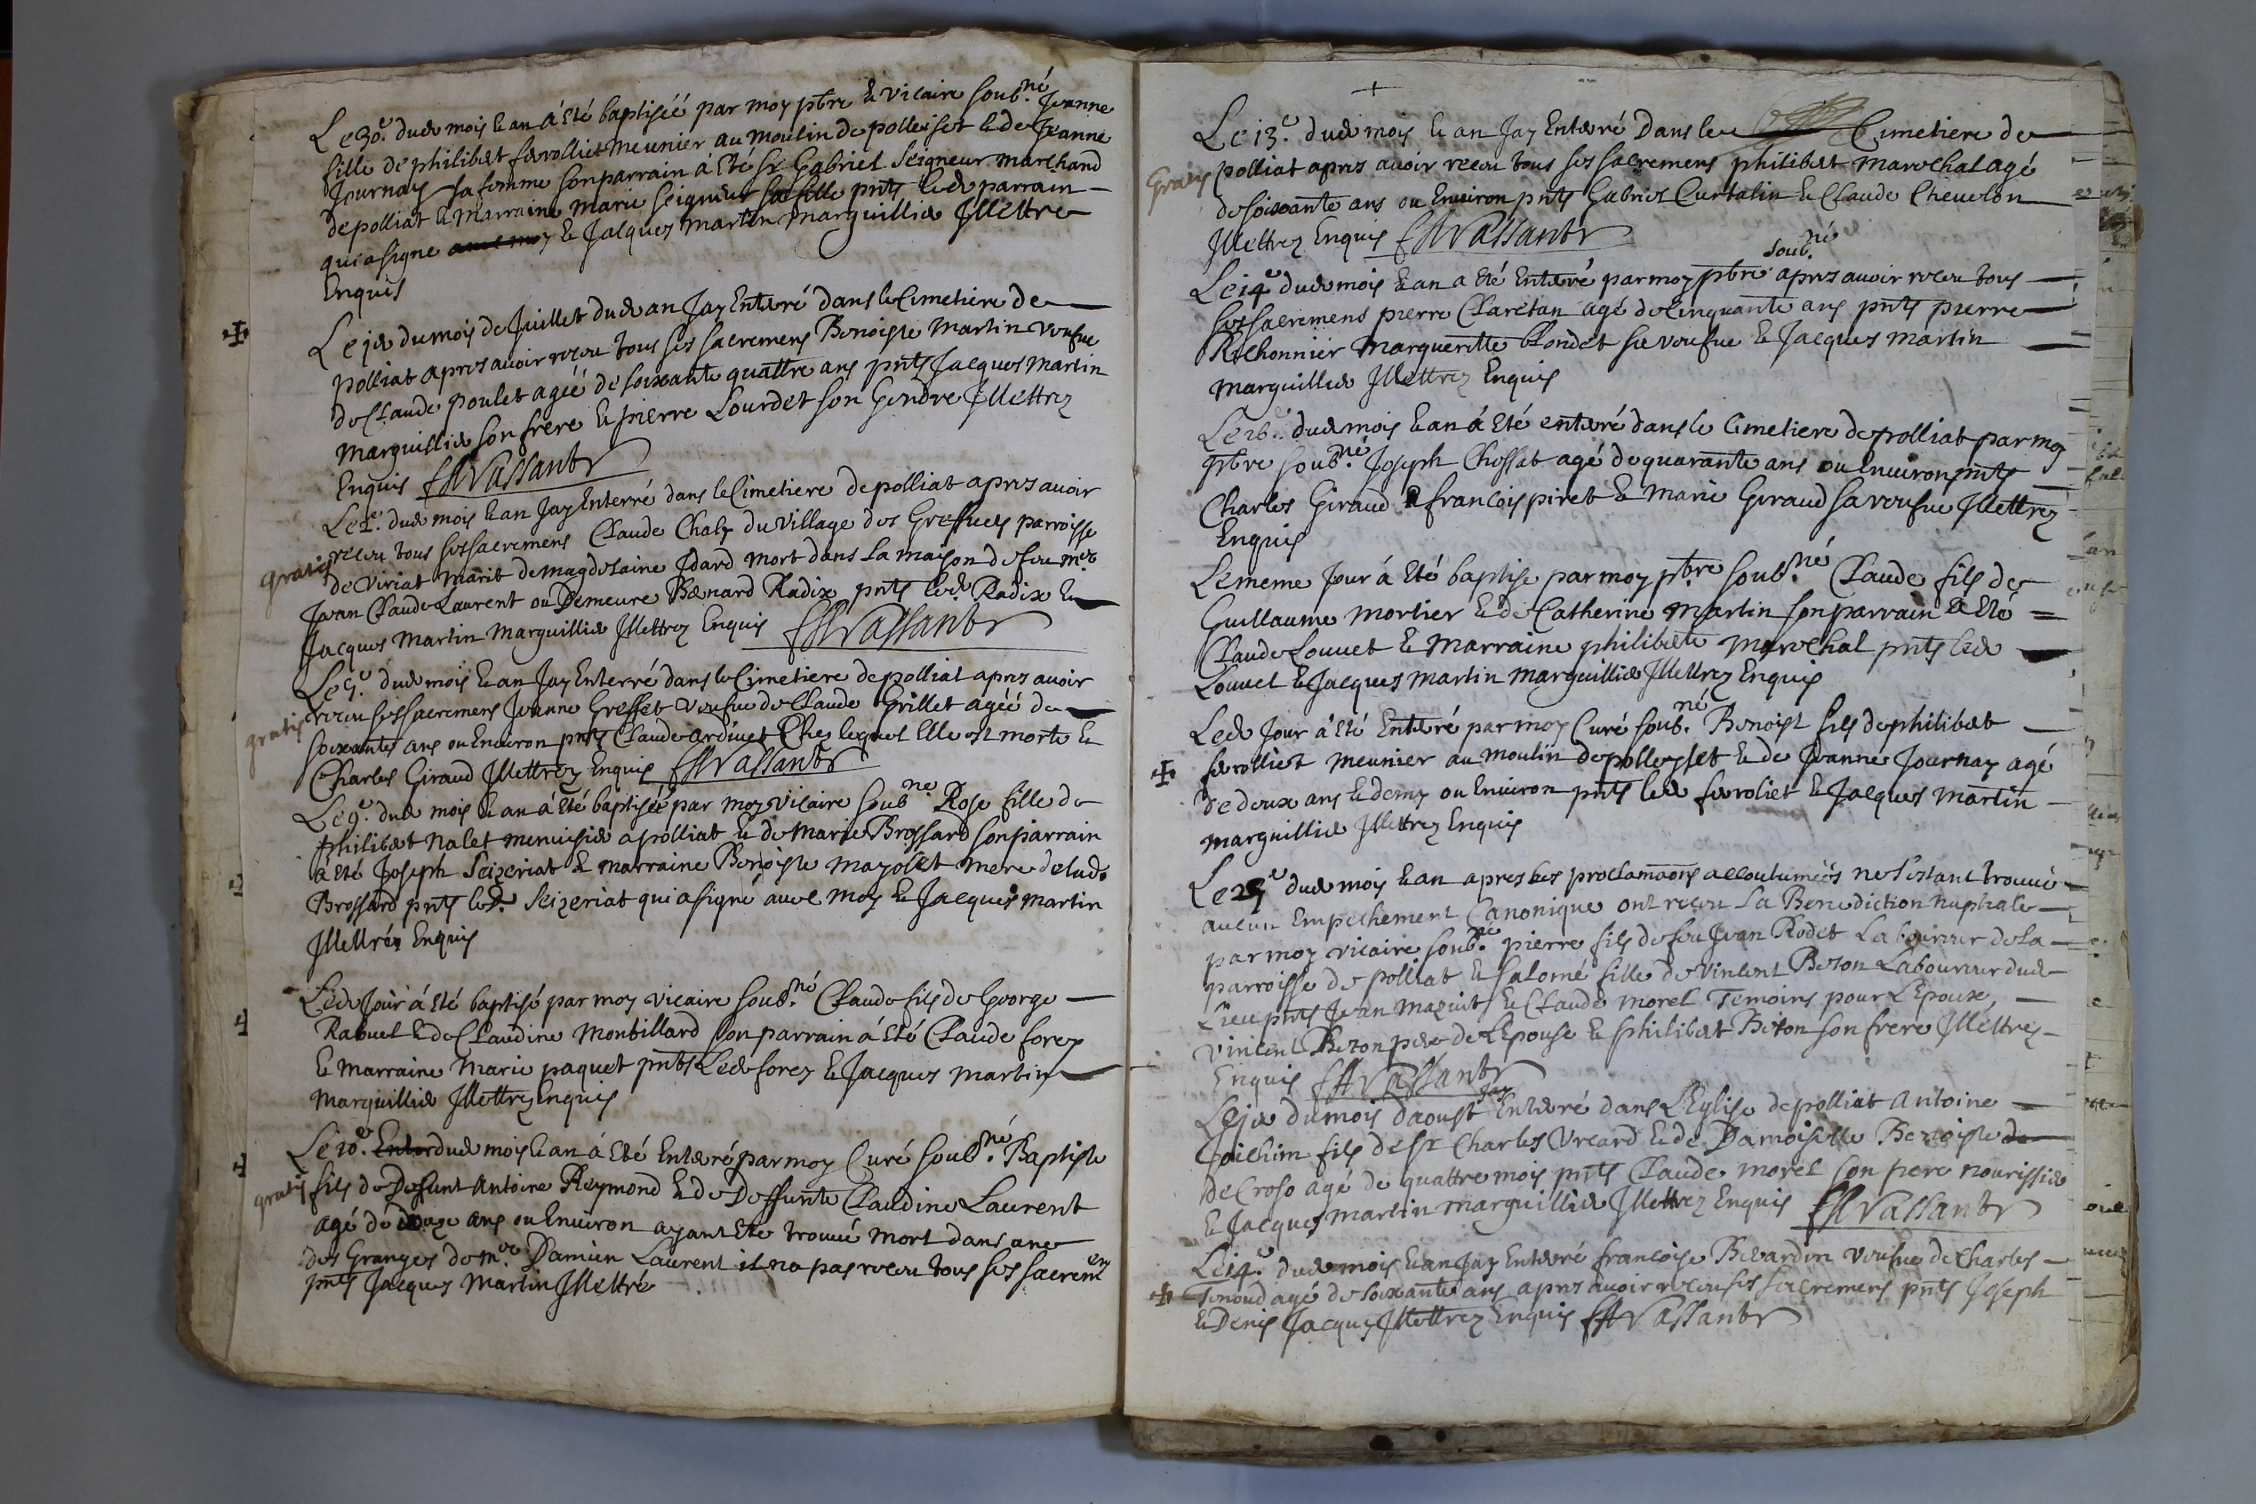 Le 30e dud mois & an á été baptiséé par moy pbre & vicaire soubné Jeanne
fille de philibert ferolliet meunier au moulin de polleiset & de Jeanne
Journay sa femme son parrain á été sr Gabriel Seigneur marchand
de polliat & marraine marie seigneur sa fille pnts led parrain
qui a signe avec moy & Jacques martin marguillier Illettre
Enquis
Le 1er du mois de Juillet dud an Jay Enterré dans le Cimetiere de
polliat apres avoir recou tous ses sacremens Benoiste Martin veufue
de Claude poulet agéé de soixante quattre ans pnts Jacques Martin
marguillier son frere & pierre Lourdet son Gendre Illettrez
Enquis Vassant
Le 2e dud mois & an Jay Enterré dans le Cimetiere de polliat apres avoir
gratis recou tous ses sacremens Claude Chaly du village des Greffiets parroisse
de Viriat marit de magdelaine Idard mort dans la maison de feu mer
Jean Claude Laurent ou Demeure Bernard Radix pnts led Radix &
Jacques Martin Marguillier Illettrez Enquis Vassant
Le 5e dud mois & an Jay Enterré dans le Cimetiere de polliat apres avoir
gratis recou ses sacremens Jeanne Greffet veufue de Claude Grillet agéé de
soixante ans ou Environ pnts Claude ardiuet Ches lequel Elle est morte &
Charles Giraud Illettrez Enquis Vassant
Le 9e dud mois & an á été baptiséé par moy vicaire soubné Rose fille de
philibert Nalet menuisier a polliat & de Marie Brossard son parrain
á été Joseph Seizeriat & marraine Benoiste mazollet mere de lad
Brossard pnts led Seizeriat qui a signé avec moy & Jacques Martin
Illettrés Enquis
Led Jour á été baptisé par moy vicaire soubné Claude fils de George
Rabuel & de Claudine Monbillard son parrain á été Claude forez
& marraine Marie paquet pnts Led forez & Jacques Martin
Marguillier Illettrez Enquis
Le 10e dud mois & an á été Enterré par moy Curé soubné Baptiste
gratis fils de Defunt Antoine Reymond & de Deffunte Claudine Laurent
agé de douze ans ou Environ ayant Eté trouué mort dans une
des Granges de mer Damien Laurent il na pas recou tous ses sacremen
pnts Jacques Martin Illettré
Le 13e dud mois & an Jay Enterré Dans le Cimetiere de
Gratis polliat apres auoir recou tous ses sacremens philibert marechal agé
de soixante ans ou Environ pnts Gabriel Curtalin & Claude Cheuelon
Illettrez Enquis Vassant
Le 14e dud mois & an a été Enterré par moy pbre soubné apres auoir recou tous
ses sacremens pierre Claretan agé de Cinquante ans pnts pierre
Richonnier marguerite blondet sa veufue & Jacques Martin
marguillier Illettrez Enquis
Le 16e dud mois & an á été enterré dans le Cimetiere de polliat par moy
pbre soubné Joseph Chossat agé de quarante ans ou Environ pnts
Charles Giraud francois piret & marie Giraud sa veufue Illettrez
Enquis
Le meme Jour á été baptise par moy pbre soubné Claude fils de
Guillaume mortier & de Catherine Martin son parrain á été
Claude Louuet & Marraine philiberte marechal pnts led
Louuet & Jacques Martin marguillier Illettrez Enquis
Led Jour á été Enterré par moy Curé soubné Benoist fils de philibert
ferolliet meunier au moulin de polleyset & de Jeanne Journay agé
de deux ans & demy ou Environ pnts led feroliet & Jacques Martin
marguillier Illettrez Enquis
Le 25e dud mois & an apres les proclamaons accoutuméés ne sestant trouué
aucun Empechement Canonique ont recou La Benediction nuptiale
par moy vicaire soubné pierre fils de feu Jean Rodet Laboureur de la
parroisse de polliat & Salomé fille de Vincent Bezon Laboureur dud
lieu pnts Jean mazuit & Claude morel Temoins pour Lepoux,
Vincent Bezon pere de Lepouse & philibert Bezon son frere Illettrez
Enquis Vassant
Le 1er du mois daoust Jay Enterré dans L'Eglise de polliat Antoine
Joachim fils de sr Charles Vrcard & de Damoiselle Benoiste de
De Croso agé de quattre mois pnts Claude morel son pere nourissier
& Jacques Martin marguillier Illettrez Enquis Vassant
Le 14e dud mois & an Jay Enterré francoise Berardin veufue de Charles
Tenoud agé de soixante ans apres auoir recou ses sacremens pnts Joseph
& Denis Jacquet Illettrez Enquis Vassant